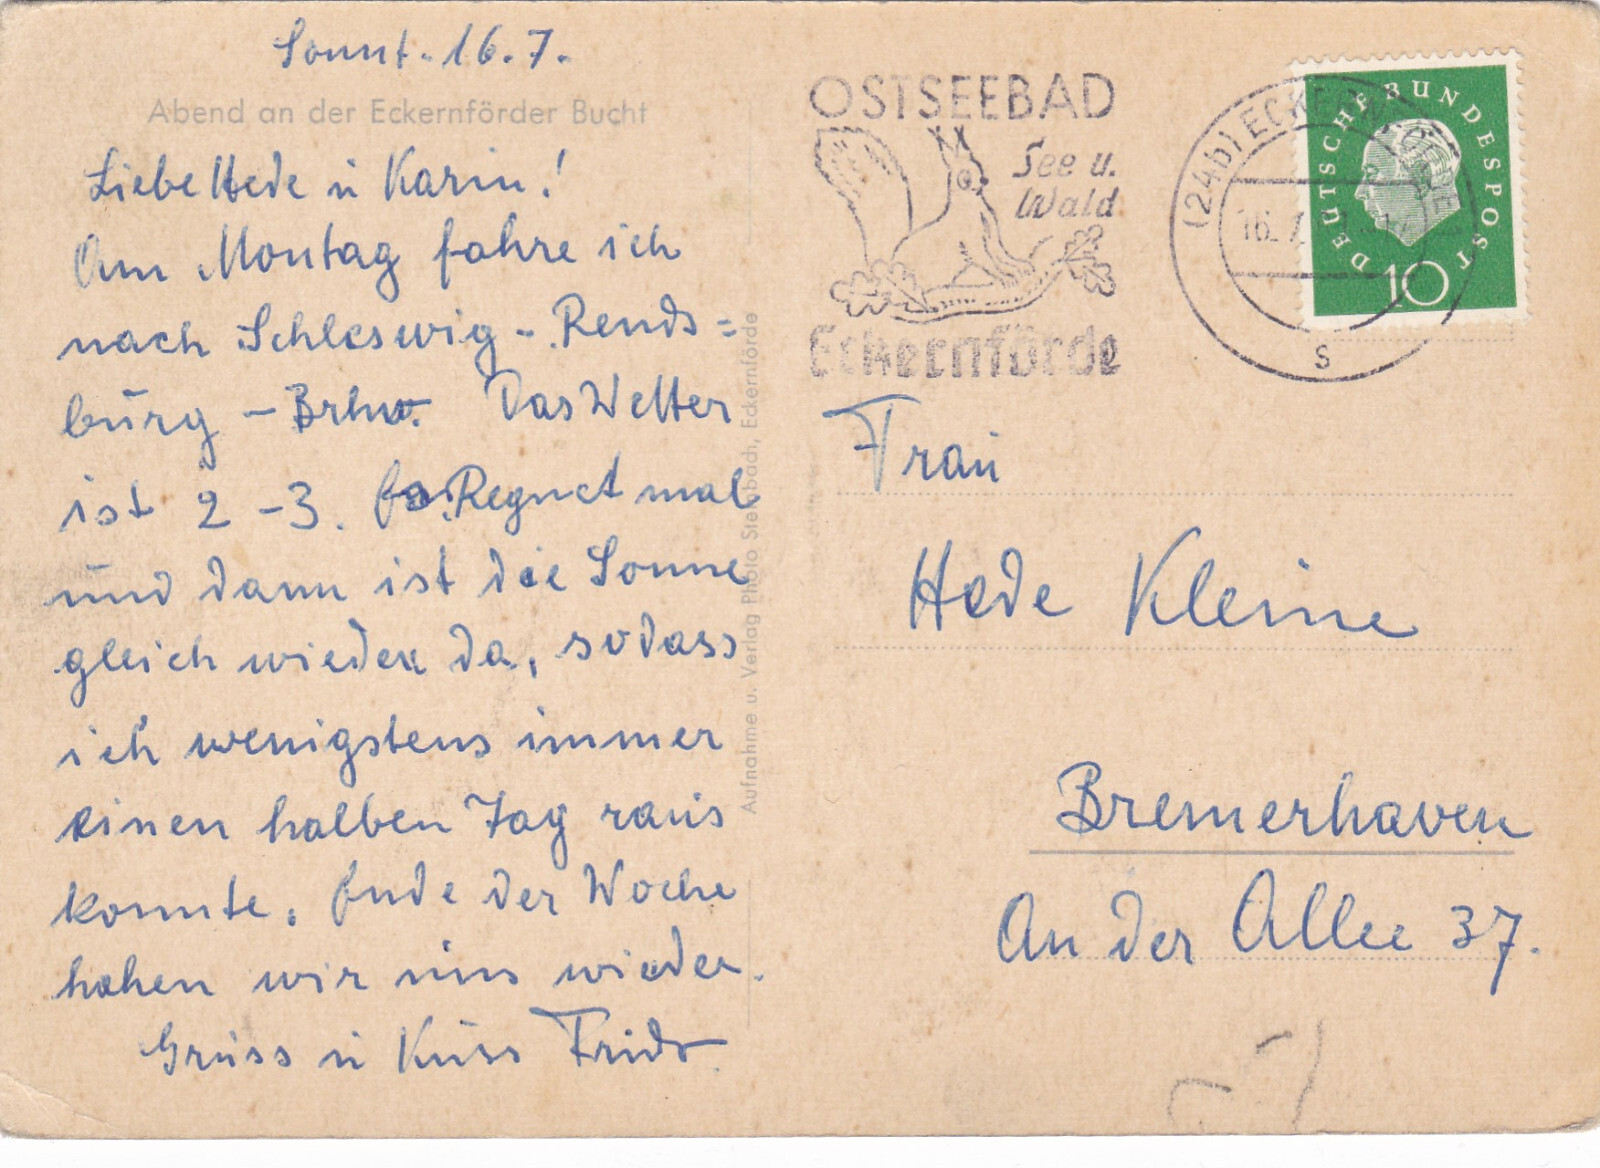 Sonnt. 16.7.
Abend an der Eckernförder Bucht
Liebe Hede u Karin!
Am Montag fahre ich
nach Schleswig - Rends=
burg - Brhv. Das Wetter
ist 2 - 3. Es Regnet mal
und dann ist die Sonne
gleich wieder da, sodass
ich wenigstens immer
einen halben Tag raus
konnte. Ende der Woche
sehen wir uns wieder.
Gruss u Kuss Frido
Aufnahme u. Verlag Photo Steinbach, Eckernförde
OSTSEEBAD
See u.
Wald
Eckernförde
(24b) ECKERNFÖRDE
16. 7.
s
DEUTSCHE BUNDESPOST
10
Frau
Hede Kleine
Bremerhaven
An der Allee 37.